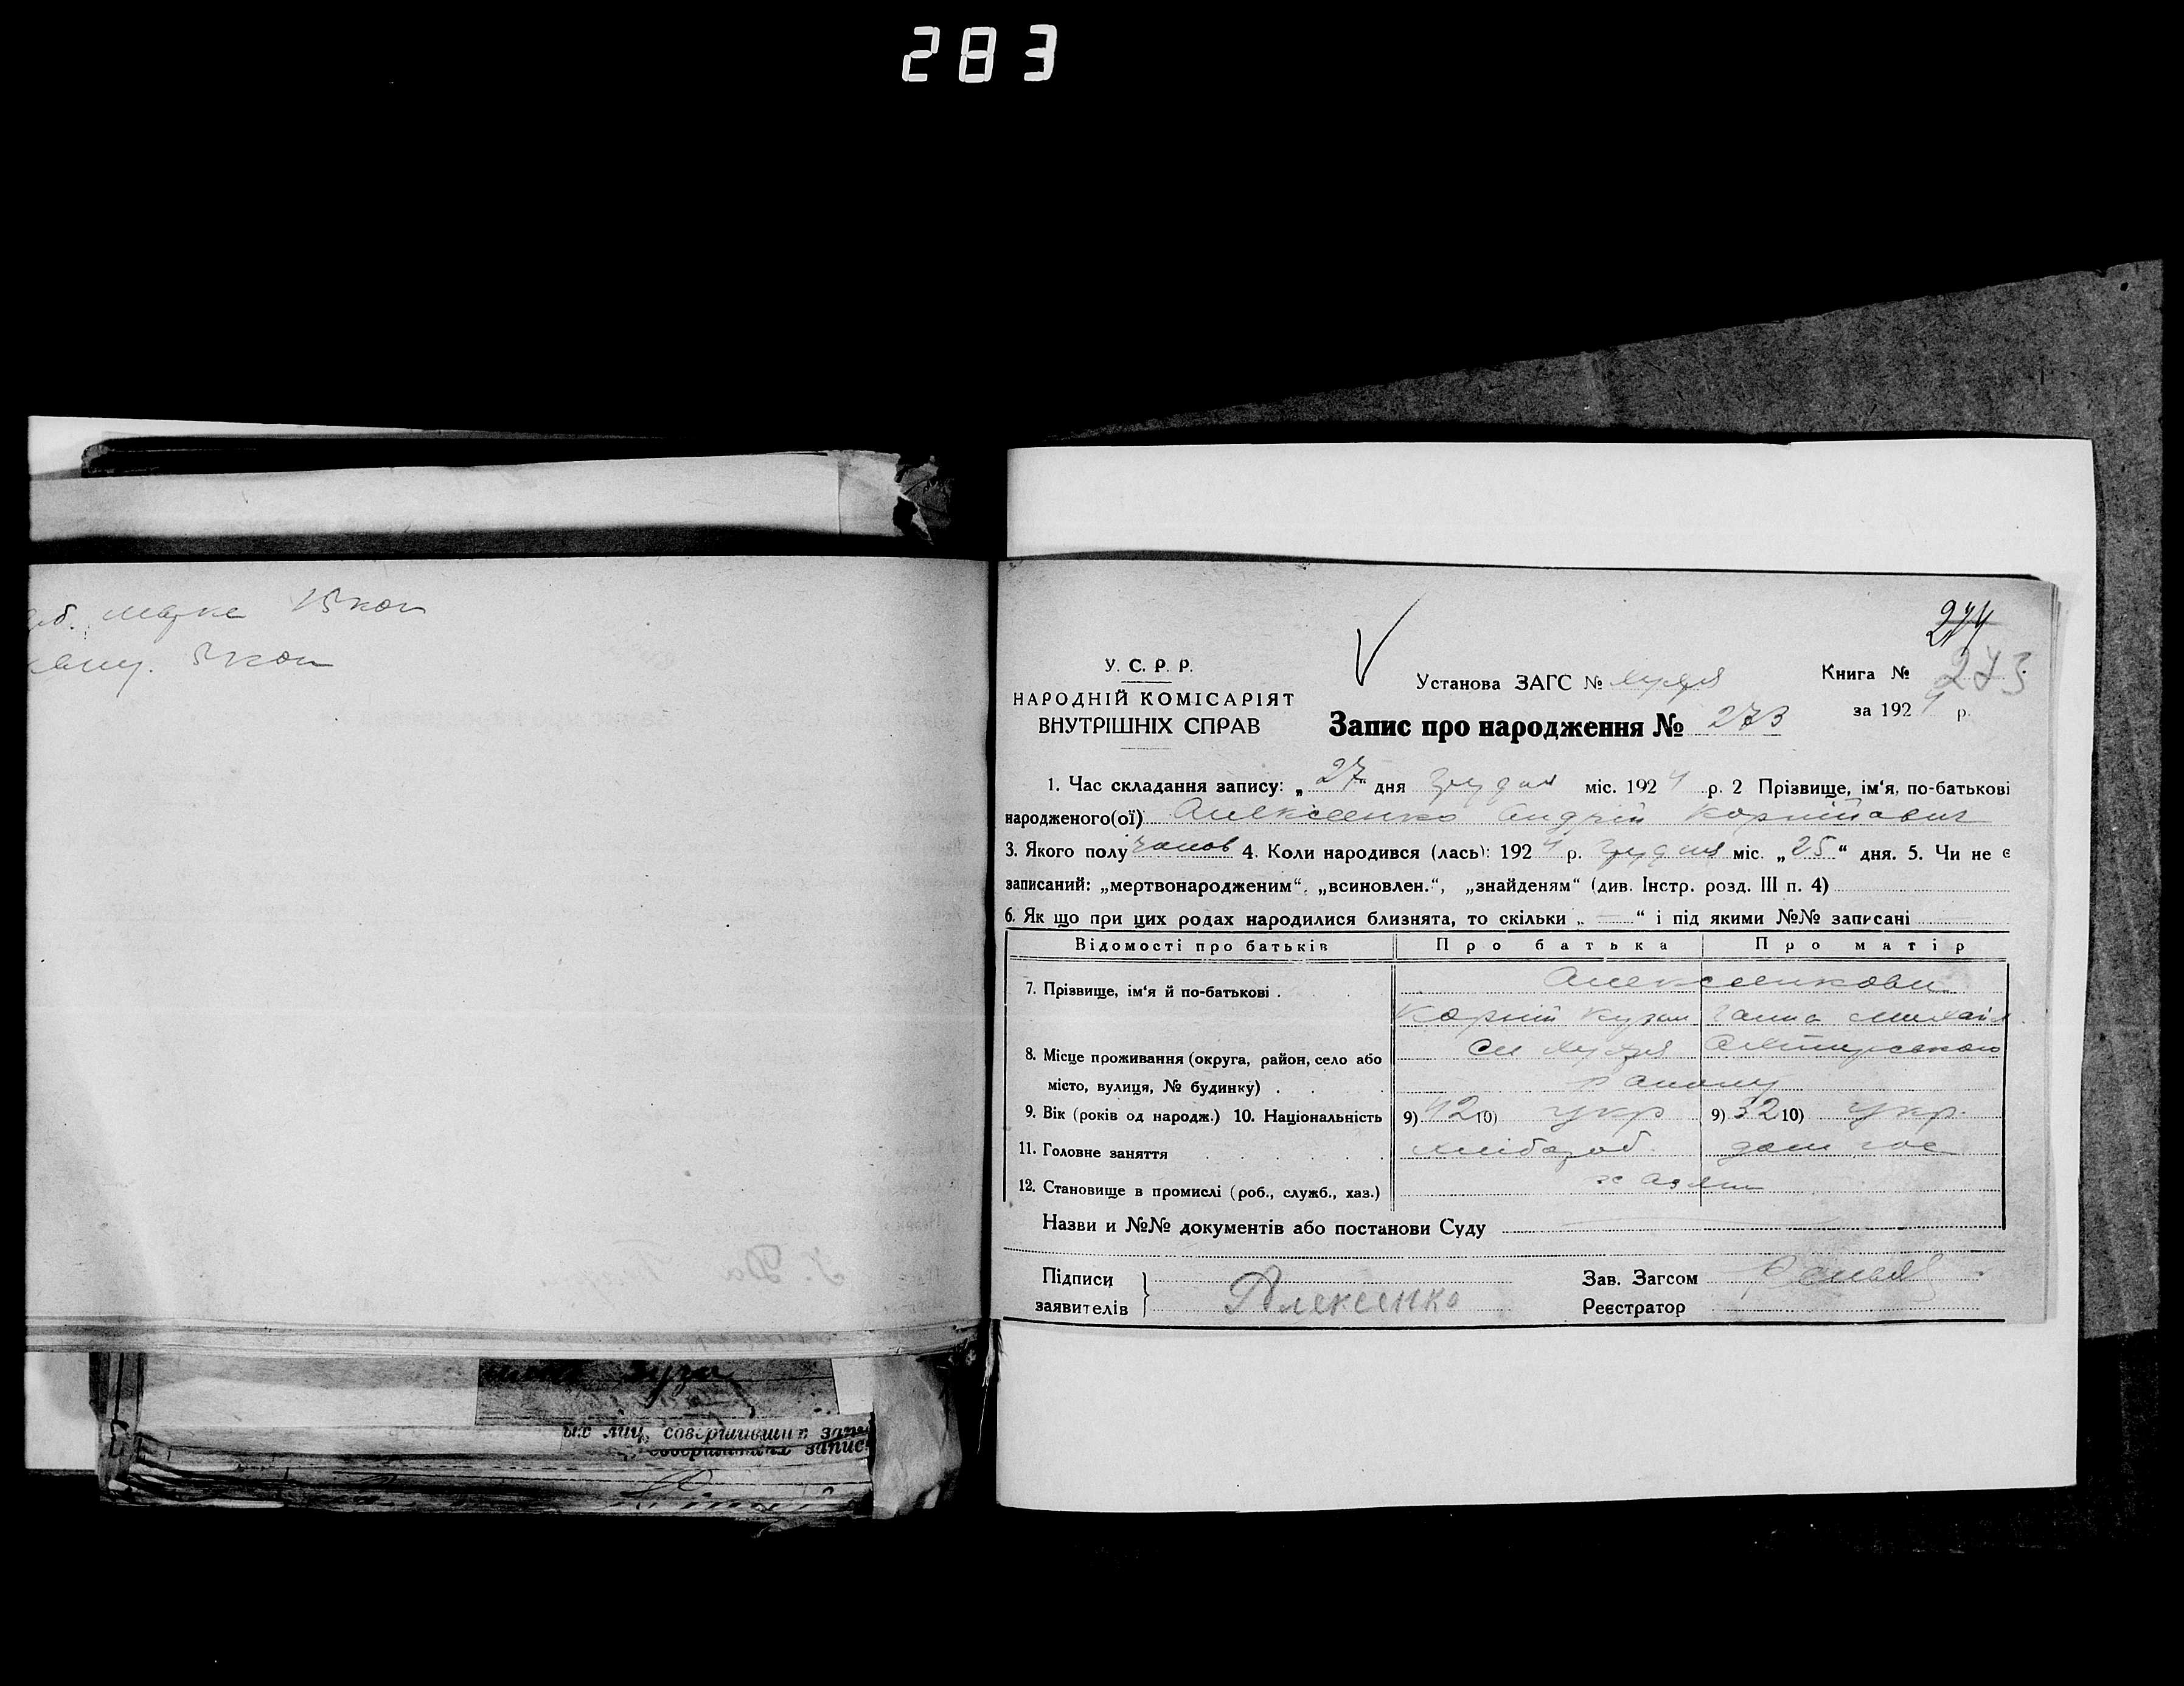 283
марке 15 коп
5 коп
274
У. С. Р. Р.
НАРОДНІЙ КОМІСАРІЯТ
ВНУТРІШНІХ СПРАВ
Установа ЗАГС №
Книга № 273
за 1924 р.
Запис про народження № 273
1. Час складання запису: „27“ дня грудня міс. 1924 р. 2 Прізвище, ім‘я, по-батькові
народженого(ої) Алексеенко Андрій Корнійович
3. Якого полу чолов 4. Коли народився (лась): 1924 р. грудня міс. „25“ дня. 5. Чи не є
записаний: „мертвонародженим“, „всиновлен.“, „знайденям“ (див. Інстр. розд. III п. 4)
6. Як що при цих родах народилися близнята, то скільки „ — “ і під якими №№ записані
Відомості про батьків Про батька Про матір
7. Прізвище, ім‘я й по-батькові . Алексеенкови
Корній Кузм Ганна Михайл
8. Місце проживання (округа, район, село або
місто, вулиця, № будинку) . району
9. Вік (років од народж.) 10. Національність 9) 42 10) укр 9) 32 10) укр.
11. Головне заняття хлібороб. дом гос
12. Становище в промислі (роб., служб., хаз.) хазяи
Назви и №№ документів або постанови Суду
Підписи
заявителів Алексенко
Зав. Загсом
Реєстратор
их лиц, совершивших запи
совершивших запис